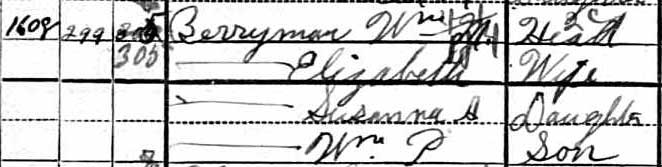 1608 299 305 Berryman Wm H. Head
— Elizabeth Wife
— Susanna D Daughter
— Wm P Son